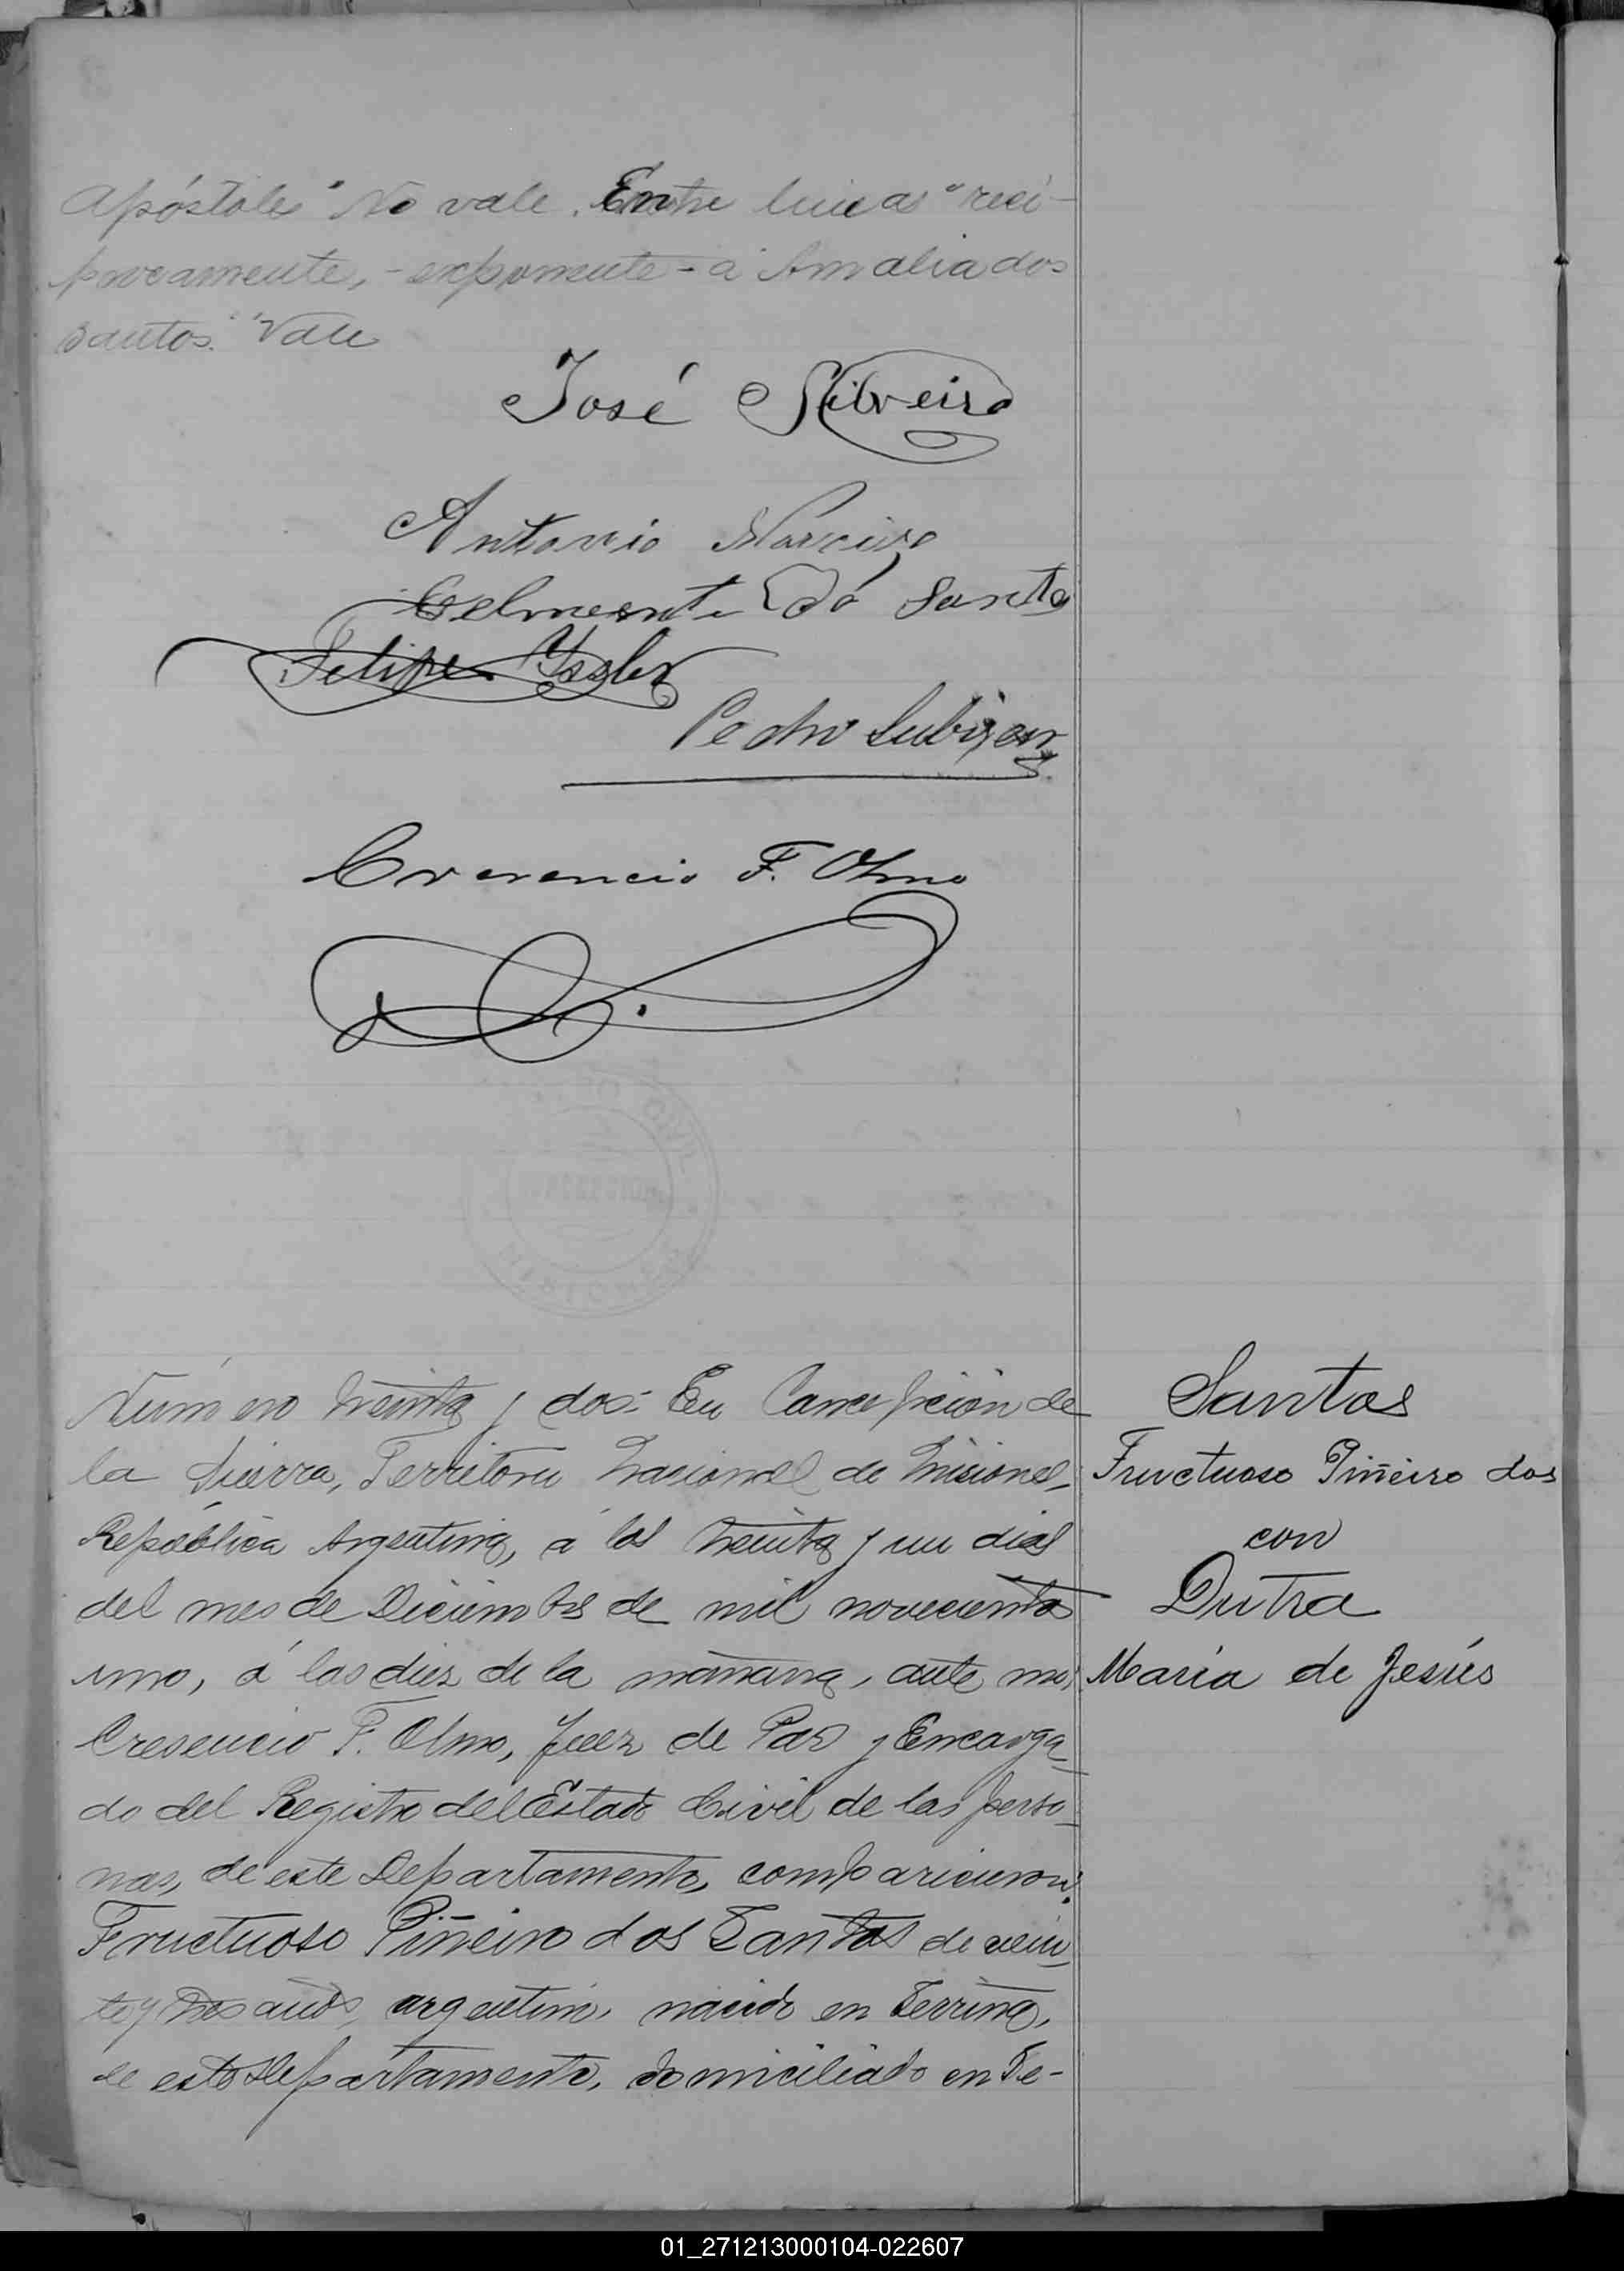 Apóstoles" No vale. Entre lineas "reci-
procamente, - exponente - a Amalia dos
Santos." Vale
José Silveira
Antonio
Pedro
Cresencio F. Olmo
Número treinta y dos: En Concepción de
la Sierra, Territorio Nacional de Misiones,
República Argentina, á los treinta y un dias
del mes de Diciembre de mil novecientos
uno, á las diez de la mañana, ante mi,
Cresencio F. Olmo, Juez de Paz y Encarga-
do del Registro del Estado Civil de las perso-
nas, de este Departamento, comparicieron:
Fructuoso Piñeiro dos Santos de vein-
te y tres años, argentino, nacido en Serrina,
de este Departamento, domiciliado en Se-
Santos
Fructuoso Piñeiro dos
con
Dutra
María de Jesús
01_271213000104-022607